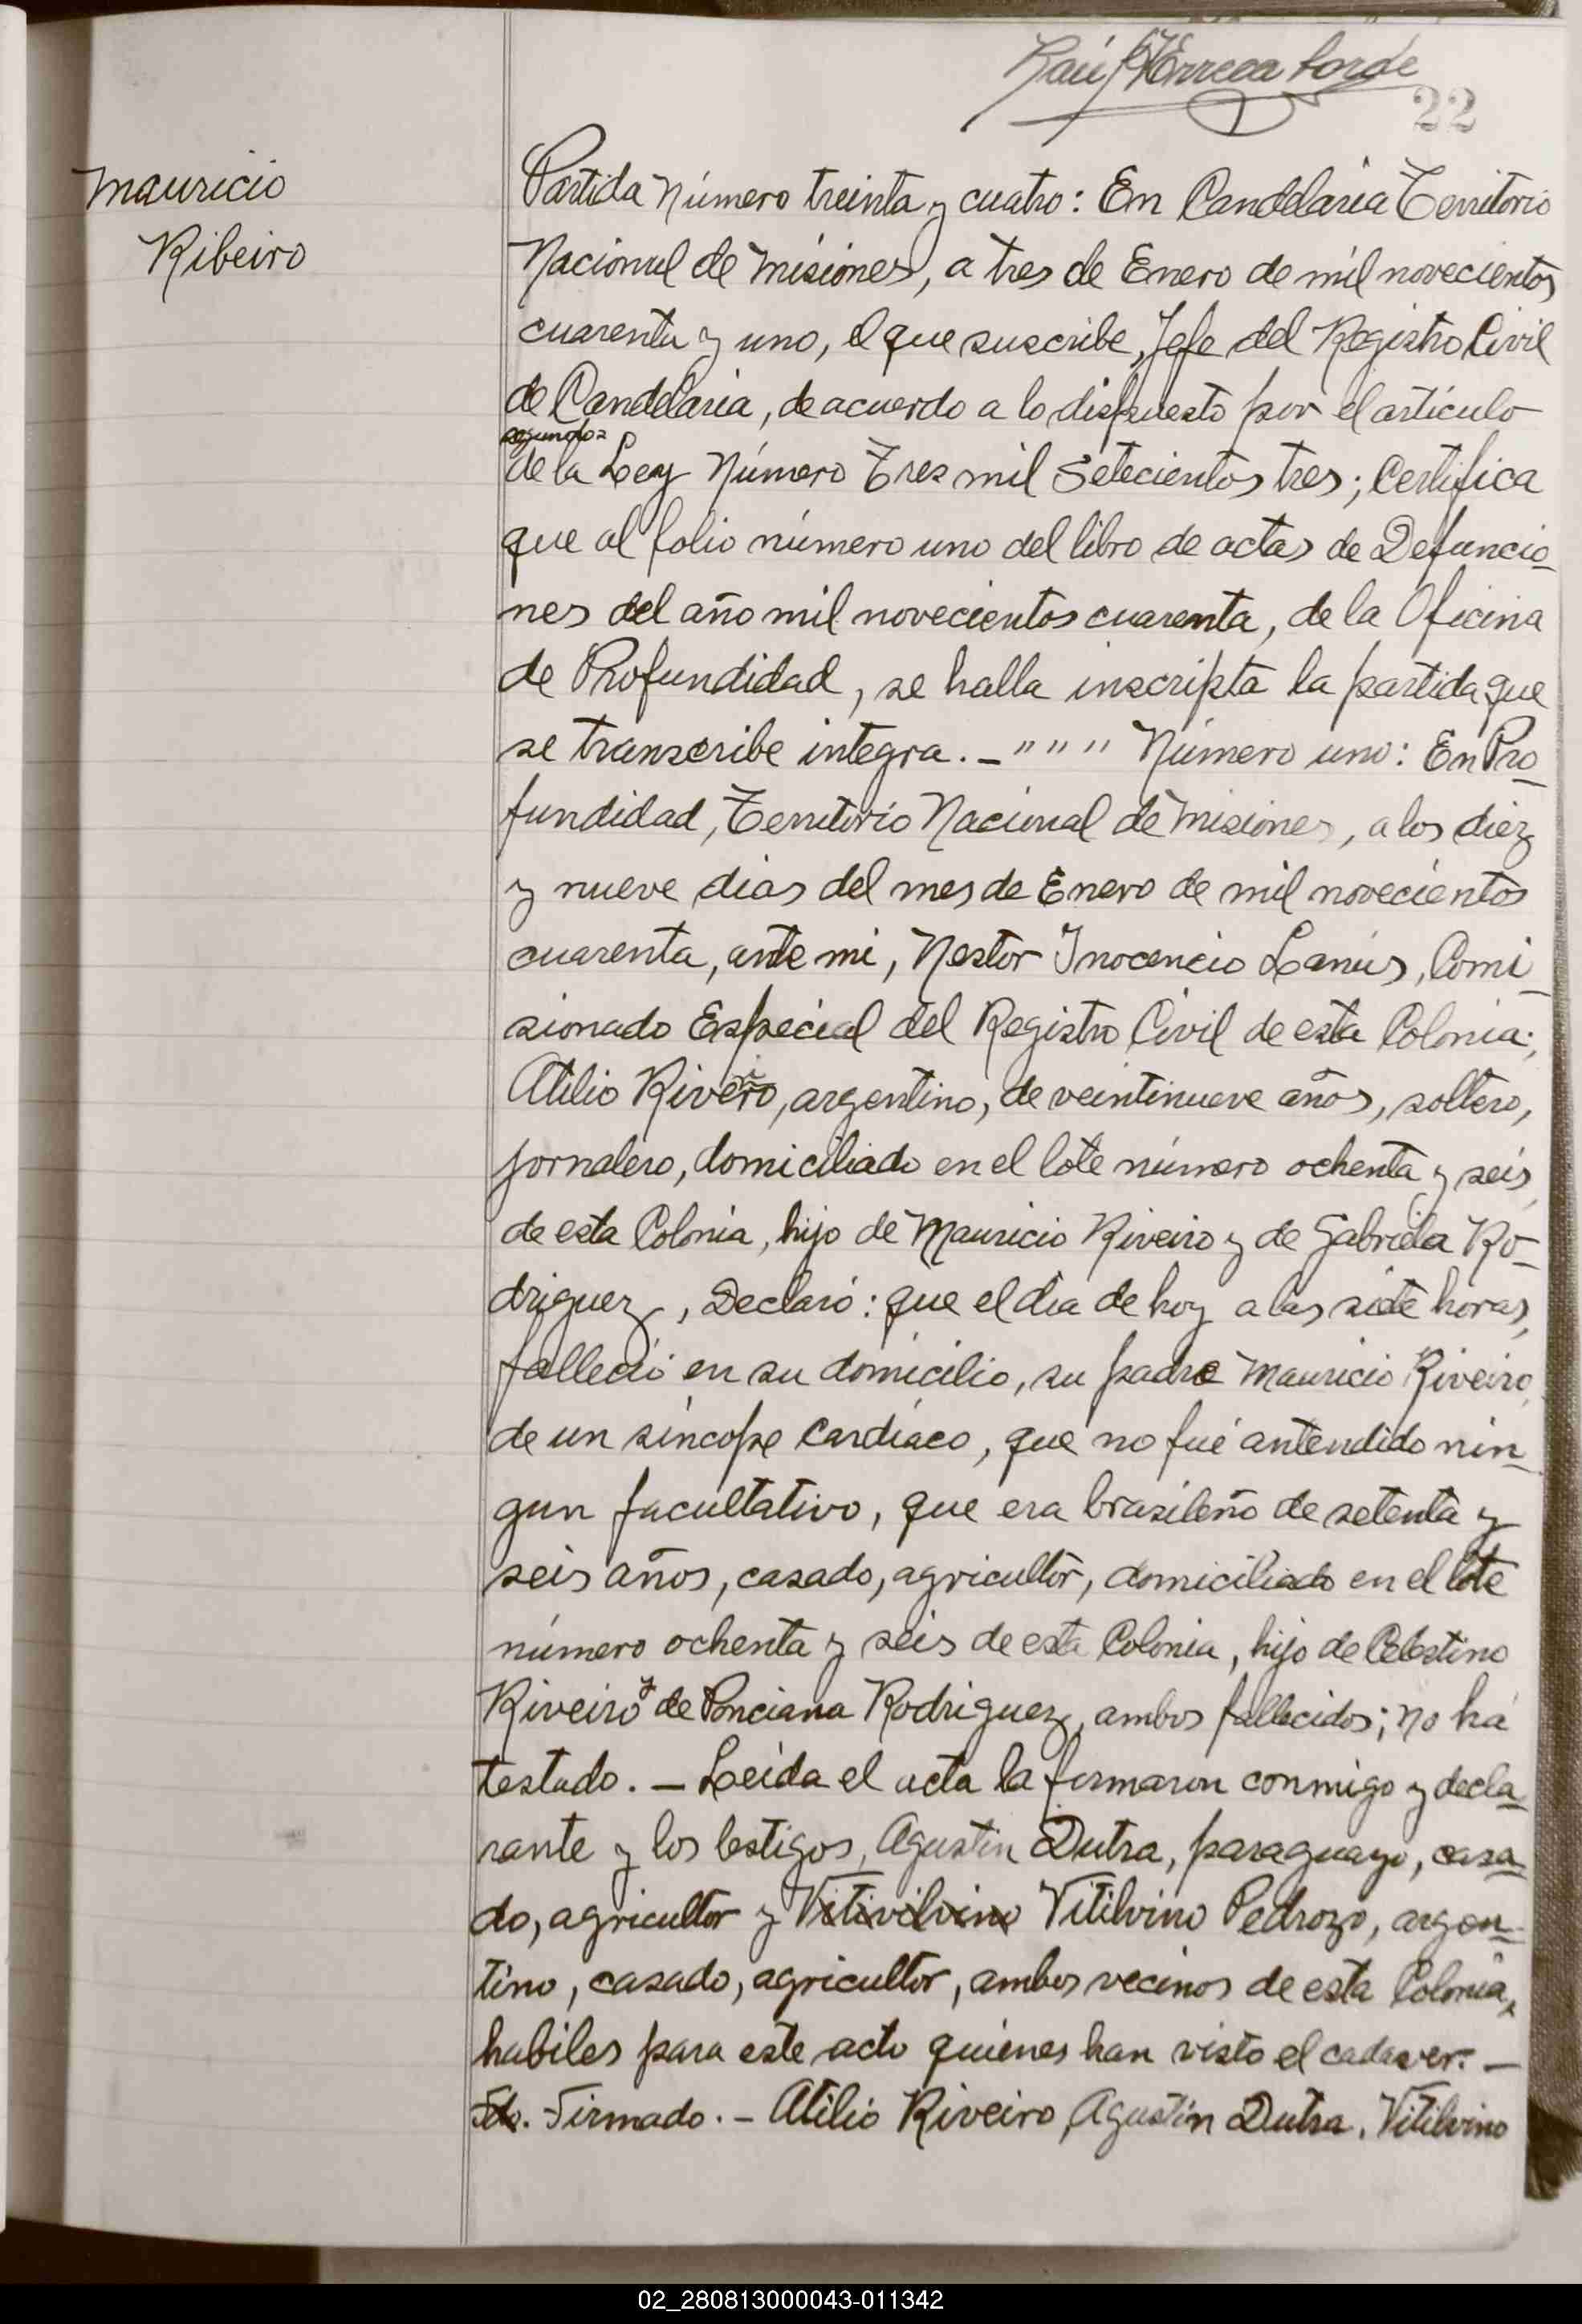 Raúl Errecaborde
22
Mauricio
Ribeiro
Partida Número treinta y cuatro: En Candelaria Territorio
Nacional de Misiones, a tres de Enero de mil novecientos
cuarenta y uno, el que suscribe, Jefe del Registro Civil
de Candelaria, de acuerdo a lo dispuesto por el artículo
segundo=
de la Ley Número Tres mil Setecientos tres; Certifica
que al folio número uno del libro de actas de Defuncio-
nes del año mil novecientos cuarenta, de la Oficina
de Profundidad, se halla inscripta la partida que
se transcribe integra.- " " " " Número uno: En Pro-
fundidad, Territorio Nacional de Misiones, a los diez
y nueve dias del mes de Enero de mil novecientos
cuarenta, ante mi, Nestor Inocencio Lanús, Comi-
sionado Especial del Registro Civil de esta Colonia;
Atilio Riveiro, argentino, de veintinueve años, soltero,
jornalero, domiciliado en el lote número ochenta y seis,
de esta Colonia, hijo de Mauricio Riveiro y de Gabriela Ro-
driguez, Declaró: que el dia de hoy a las siete horas,
falleció en su domicilio, su padre Mauricio Riveiro,
de un síncope cardíaco, que no fué antendido nin-
gun facultativo, que era brasileño de setenta y
seis años, casado, agricultor, domiciliado en el lote
número ochenta y seis de esta Colonia, hijo de Celestino
Riveiro y de Ponciana Rodriguez, ambos fallecidos; no há
testado. - Leida el acta la firmaron conmigo y decla-
rante y los testigos, Agustin Dutra, paraguayo, casa-
do, agricultor y Vitivilvino Vitilvino Pedrozo, argen-
tino, casado, agricultor, ambos vecinos de esta Colonia,
habiles para este acto quienes han visto el cadaver. -
Fdo. Firmado. - Atilio Riveiro, Agustín Dutra, Vitilvino
02_280813000043-011342